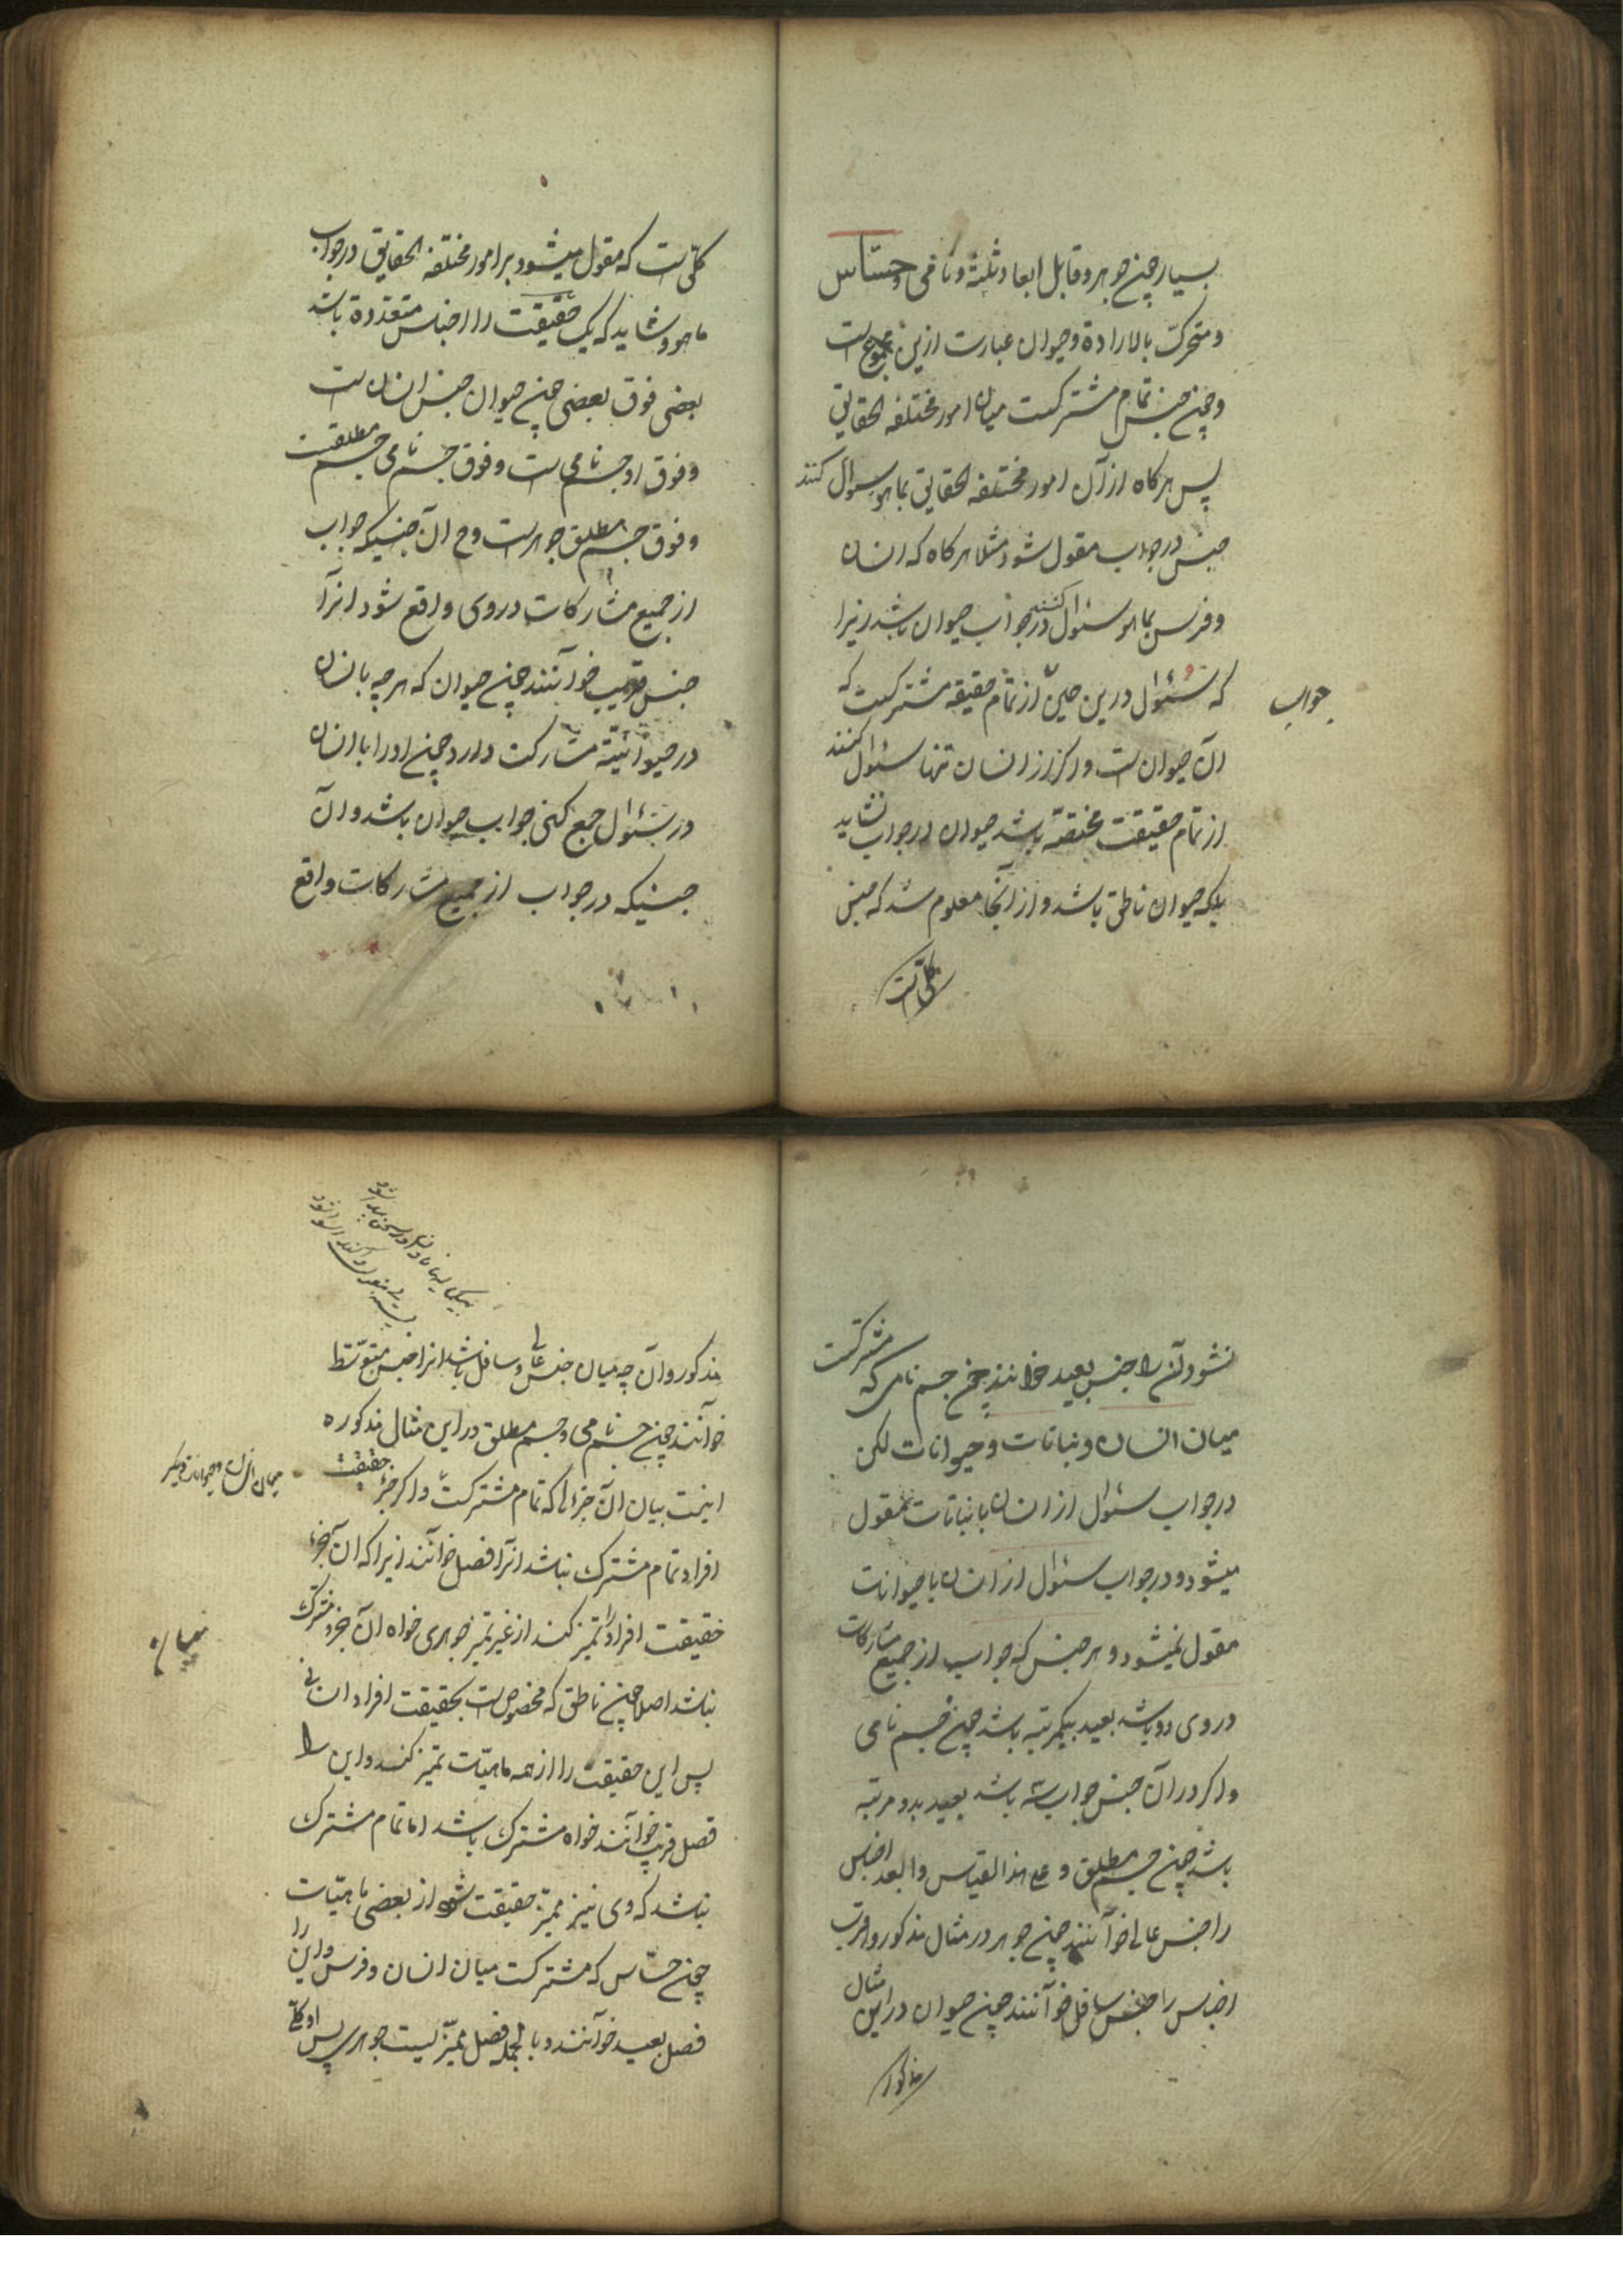 بسیار چنن جوهر و قابل ابعاد ثلثة و نامی و حسّاس
و متحرک بالارادة و حیوان عبارت ازین مجموع است
و چنن جنس تمام مشترکست میان امور مختلفه الحقایق
پس هرکاه از آن امور مختلفه الحقایق بما هو سؤال کنند
جنس در جواب مقول شود مثلا هرکاه که انسان
و فرس بما هو سئوال کنند در جواب حیوان باشد زیرا
که سئوال درین حین از تمام حقیقه مشترکست که
جواب
آن حیوان است و اکر از انسان تنها سئوال کنند
از تمام حقیقت مختصّه باشد حیوان در جواب نشاید
بلکه حیوان ناطق باشد و از آنجا معلوم شد که جنس
کلّی است
کلّی است که مقول میشود بر امور مختلفه الحقایق در جواب
ما هو و شاید که یک حقیقت را اجناس متعدّده باشد
بعضی فوق بعضی چنن حیوان جنس انسان است
و فوق او جسم نامی است و فوق جسم نامی جسم مطلقست
و فوق جسم مطلق جوهر است و ح آن جنسیکه جواب
از جمیع مشارکات در وی واقع شود انرا
جنس قریب خوانند چنن حیوان که هرچه باانسان
در حیوانیّته مشارکت دارد چنن اورا باانسان
در سئوال جمع کنی جواب حیوان باشد و آن
جنسیکه در جواب از جمیع مشارکات واقع
نشود آن را جنس بعید خوانند چنن جسم نامی که مشترکست
میان انسان و نباتات و حیوانات لکن
در جواب سئوال از انسان با نباتات مقول
میشود و در جواب سئوال از انسان با حیوانات
مقول نمیشود و هر جنس که جواب از جمیع مشارکات
در وی دو باشد بعید بیکمرتبه باشد چنن جسم نامی
و اکر در آن جنس جواب سه باشد بعید بدو مرتبه
باشد چنن جسم مطلق و علی هذا القیاس و ابعد اجناس
را جنس عالی خوانند چنن جوهر در مثال مذکور و اقرب
اجناس را جنس سافل خوانند چنن حیوان در این مثال
مذکور
مذکور و آن چه میان جنس عالی و سافل باشد انرا جنس متوسّط
خوانند چنن جسم نامی و جسم مطلق در این مثال مذکوره
اینست بیان آن جزء که تمام مشترکست و اکر جزء حقیقت
میان انسان و حیوانات دیکر
افراد تمام مشترک نباشد انرا فصل خوانند زیرا که آن جزء
حقیقت افراد را تمیز کند از غیر تمیز جوهری خواه آن جزء مشترک
نباشد اصلا چنن ناطق که مخصوص است بحقیقت افراد انسانی
پس این حقیقت را از همه ماهیّات تمیز کند و این را
فصل قریب خوانند خواه مشترک باشد اما تمام مشترک
نباشد که وی نیز ممیّز حقیقت شود از بعضی ماهیّات
چنن حسّاس که مشترکست میان انسان و فرس و این را
فصل بعید خوانند و بالجمله فصل ممیّزیست جوهری پس او کلّی